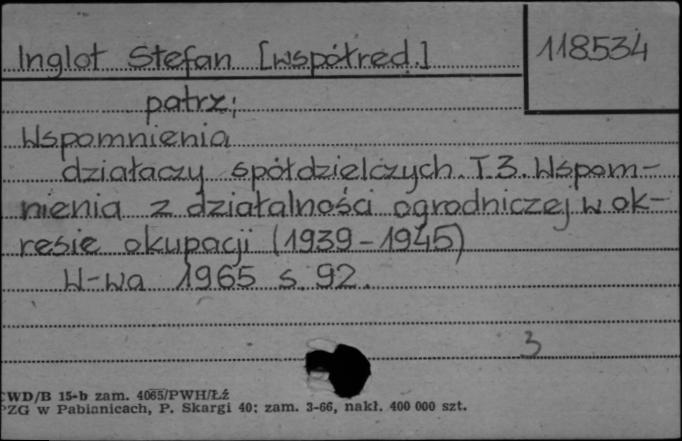 Inglot Stefan [współred.]
118534
patrz:
Wspomnienia
działaczy spółdzielczych. T.3. Wspom-
nienia z działalności ogrodniczej w ok-
resie okupacji (1939-1945)
W-wa 1965 s. 92.
3
CWD/B 15-b zam. 4065/PWH/Łź
PZG w Pabianicach, P. Skargi 40; zam. 3-66, nakł. 400 000 szt.